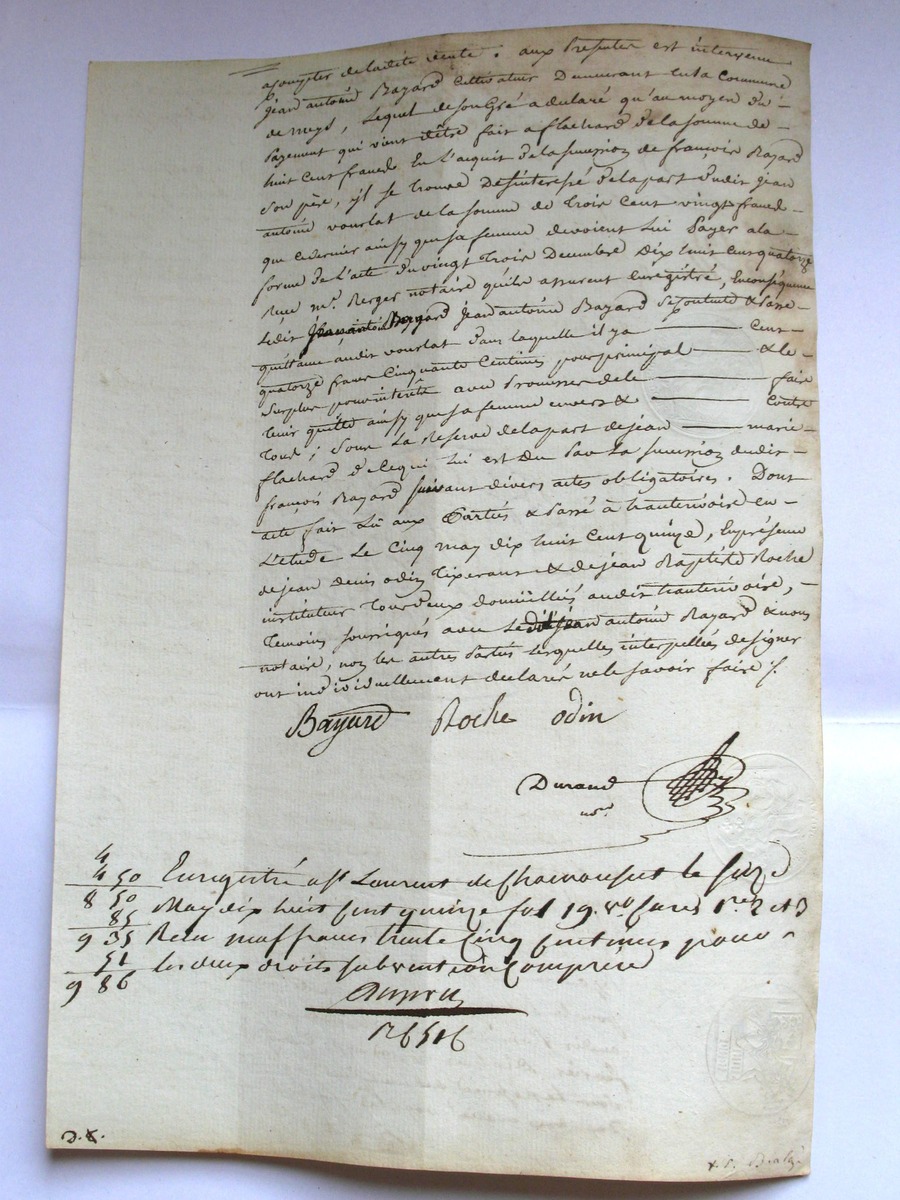 acompter de ladite vente : aux presentes est intervenu
jean antoine Bayard Cultivateur Demeurant en la Commune
de meys, Lequel de son Gré a declaré qu'au moyen du
payement qui vient d'être fait a flachard de la somme de
huit Cent francs En l'acquit de la succession de françois Bayard
son père, il se trouve Desinteressé de la part dudit jean
antoine vourlat de la somme de Trois Cent vingt francs
que ce dernier ainsy que sa femme devoient lui payer a la
forme de L'acte du vingt Trois Decembre Dix huit Cent quatorze
Reçu me. Berger notaire qu'ils assurent Enregistré, En conséquence
Ledit jean antoine Bayard se contente & passe
quittance audit vourlat dans laquelle il y a Cent
quatorze francs Cinquante Centimes pour principal & le
surplus pour interêts avec promesse de le faire
tenir quitte ainsy que sa femme envers & Contre
tous ; sous La Reserve de la part de jean marie
flachard de ce qui Lui est Du par La succession dudit
françois Bayard suivant divers actes obligatoires. Dont
acte fait Lû aux Parties & Passé à hauterivoire en
L'etude Le Cinq may dix huit Cent quinze, En présence
de jean denis odin Tixerant & de jean Baptiste Roche
instituteur Tous deux domiciliés audit hauterivoire,
Temoins soussignés avec Ledit jean antoine Bayard & nous
notaire, non les autres parties lesquelles interpellées de signer
ont individuellement declarés ne le savoir faire /.
Bayard Roche odin
Durand
nore
4
4 50 Enregistré a St Laurent de Chamousset le seize
8 50
85 May dix huit Cent quinze fol 19 vo Cases 1re 2 et 3
9 35 Reçu neuf francs trente Cinq Centimes pour
51 les deux droits subvention Comprise
9 86
D.&.